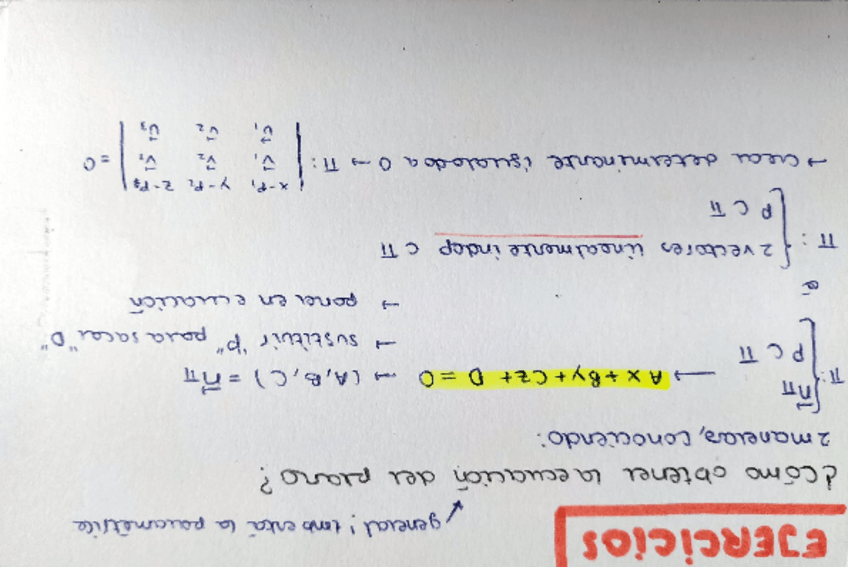 EJERCICIOS
general; también la paramétrica
¿Cómo obtener la ecuación del plano?
2 maneras, conociendo:
π: { n⃗π → Ax + By + Cz + D = 0 → (A, B, C) = n⃗π
P ⊂ π → sustituir "P" para sacar "D"
→ poner en ecuación
o
π: { 2 vectores linealmente indep ⊂ π
P ⊂ π
→ crear determinante igualado a 0 → π: | x-P₁ y-P₂ z-P₃ |
| v⃗₁ v⃗₂ v⃗₃ | = 0
| u⃗₁ u⃗₂ u⃗₃ |